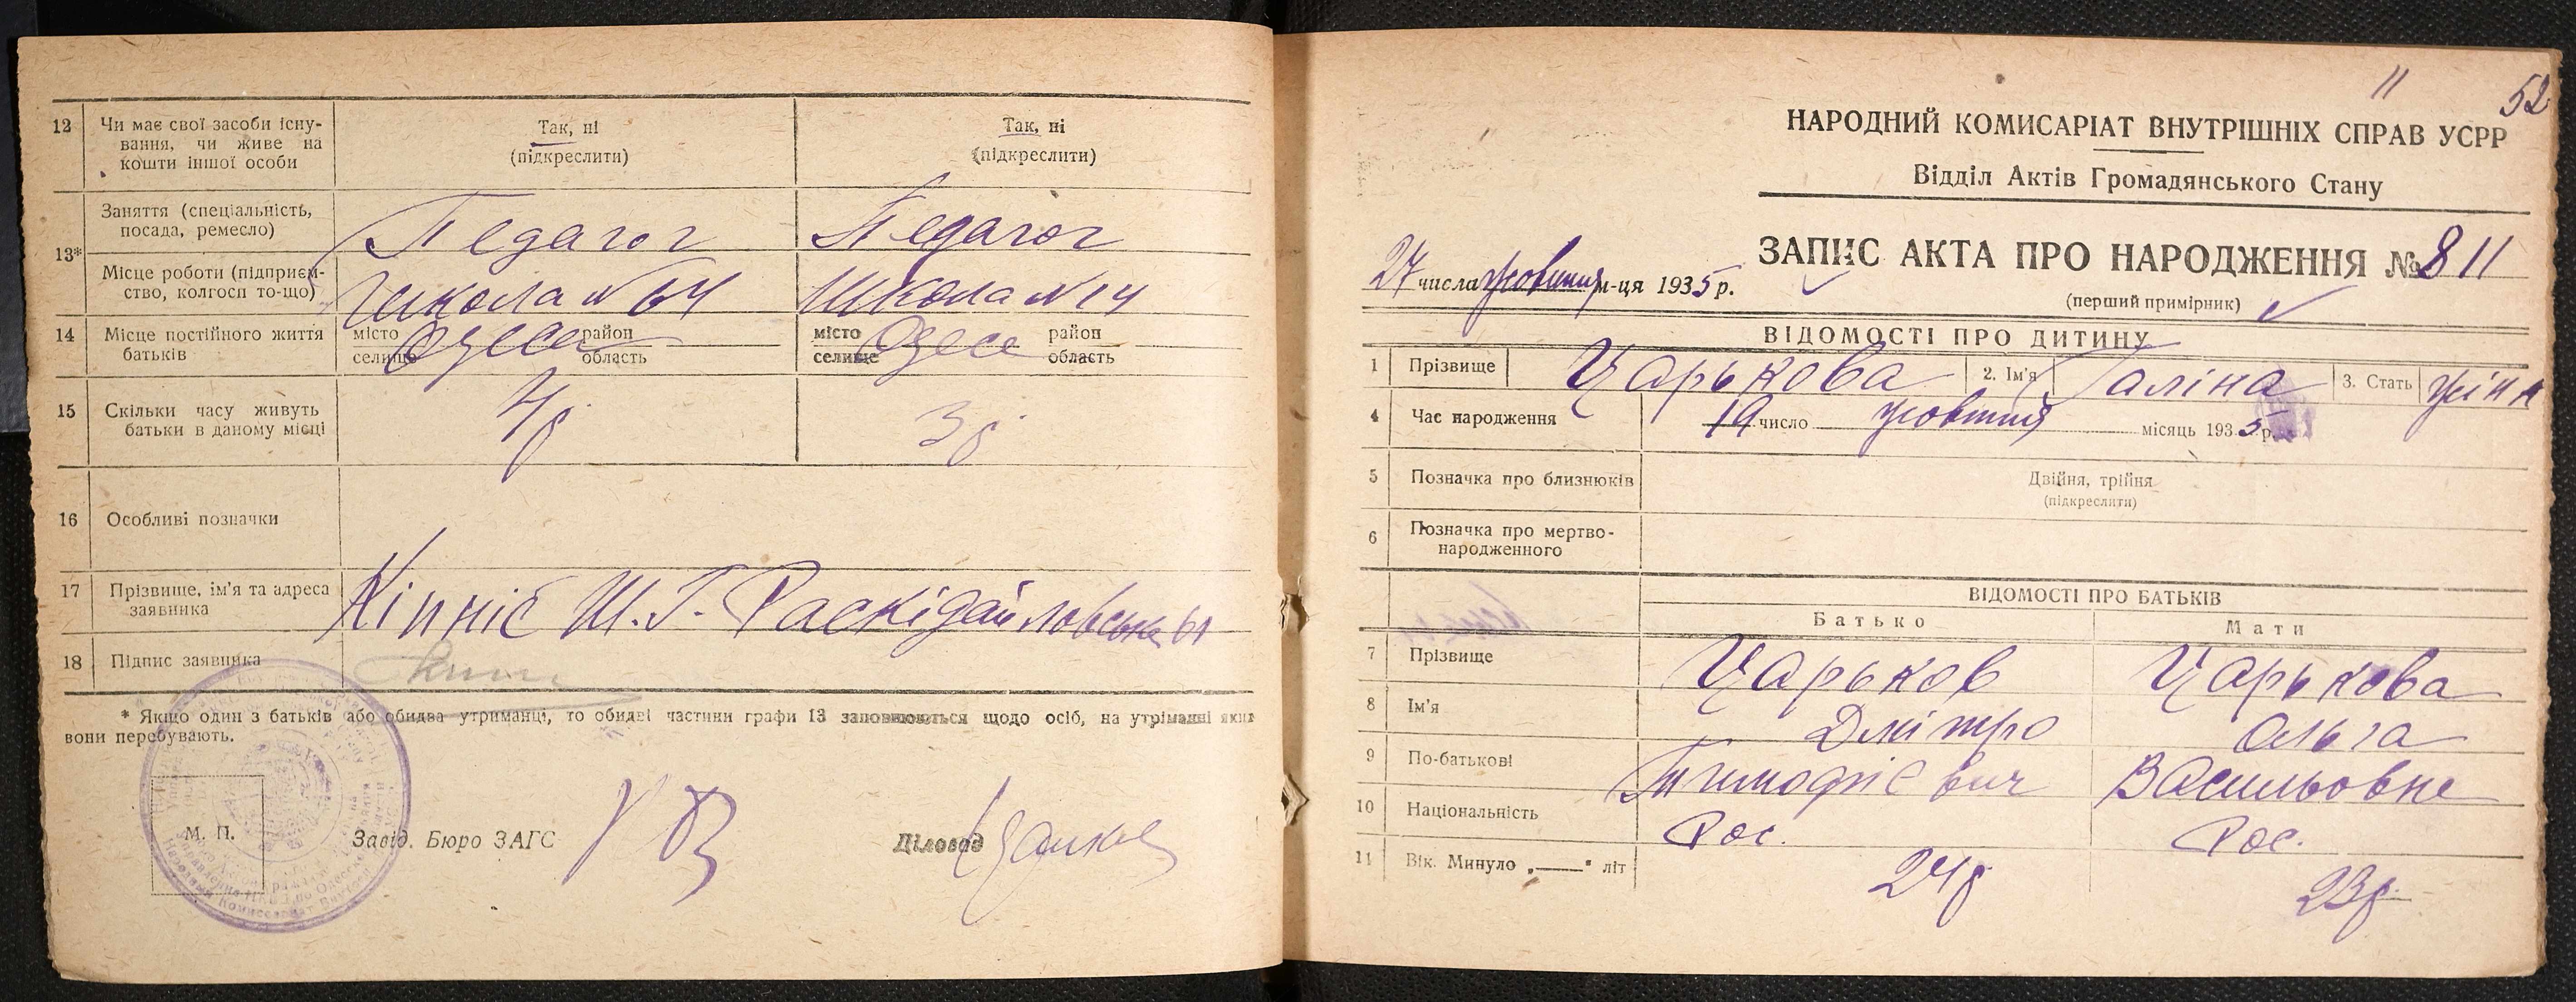 12 Чи має свої засоби існу-
вання, чи живе на
кошти іншої особи
Так, ні
(підкреслити)
Так, ні
(підкреслити)
13*
Заняття (спеціальність,
посада, ремесло)
Педагог
Педагог
Місце роботи (підприєм-
ство, колгосп то-що)
Школа № 64
Школа № 14
14 Місце постійного життя
батьків
місто
селище
Одеса
район
область
місто
селище
Одеса
район
область
15 Скільки часу живуть
батьки в даному місці
4 р
3 р
16 Особливі позначки
17 Прізвище, ім'я та адреса
заявника
Кіпніс Ш. Г. Раскідайловська 61
18 Підпис заявника
* Якщо один з батьків або обидва утриманці, то обидві частини графи 13 заповнюються щодо осіб, на утріманні яких
вони перебувають.
М. П.
Завід. Бюро ЗАГС
Діловод
11
52
НАРОДНИЙ КОМИСАРІАТ ВНУТРІШНІХ СПРАВ УСРР
Відділ Актів Громадянського Стану
ЗАПИС АКТА ПРО НАРОДЖЕННЯ № 811
27 числа жовтня м-ця 1935 р.
(перший примірник)
ВІДОМОСТІ ПРО ДИТИНУ
1 Прізвище Царькова 2. Ім'я Галіна 3. Стать жін
4 Час народження 19 число жовтня місяць 1935 р.
5 Позначка про близнюків
Двійня, трійня
(підкреслити)
6 Позначка про мертво-
народженного
ВІДОМОСТІ ПРО БАТЬКІВ
Батько Мати
7 Прізвище Царьков Царькова
8 Ім'я Дмітро Ольга
9 По-батькові Тимофієвич Васильовне
10 Національність Рос. Рос.
11 Вік. Минуло „——" літ 24 р 23 р